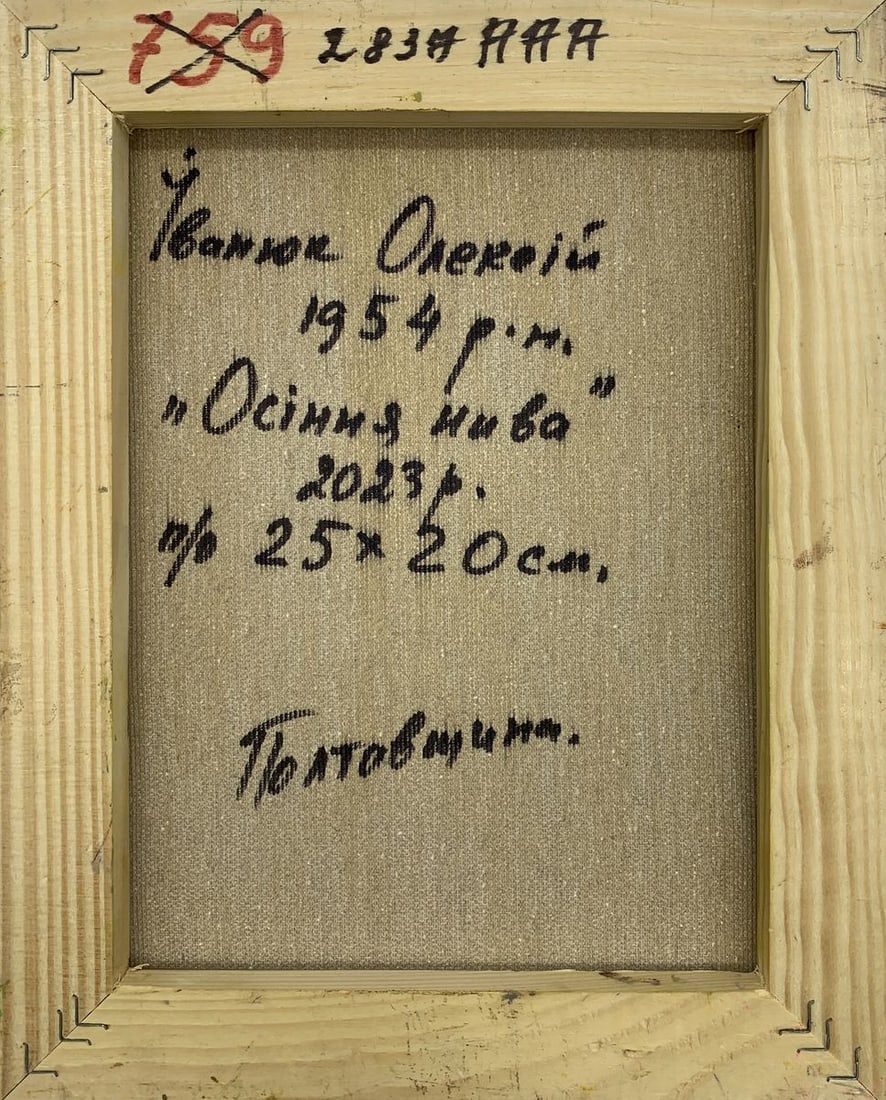 759 283А ААА
Іванюк Олексій
1954 р.н.
„Осіння нива"
2023 р.
п/о 25x20 см.
Полтовщина.